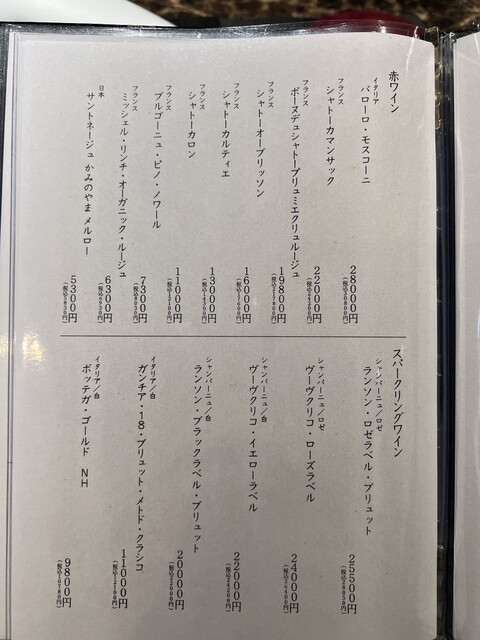 赤ワイン
イタリア
バローロ・モスコーニ
28000円
(税込30800円)
フランス
シャトーカマンサック
22000円
(税込24200円)
フランス
ボーヌデュシャトープルミエクリュルージュ
19800円
(税込21780円)
フランス
シャトーオーブリッソン
16000円
(税込17600円)
フランス
シャトーカルティエ
13000円
(税込14300円)
フランス
シャトーカロン
11000円
(税込12100円)
フランス
ブルゴーニュ・ピノ・ノワール
7300円
(税込8030円)
フランス
ミッシェル・リンチ・オーガニック・ルージュ
6300円
(税込6930円)
日本
サントネージュ かみのやま メルロー
5300円
(税込5830円)
スパークリングワイン
シャンパーニュ/ロゼ
ランソン・ロゼラベル・ブリュット
25500円
(税込28050円)
シャンパーニュ/ロゼ
ヴーヴクリコ・ローズラベル
24000円
(税込26400円)
シャンパーニュ/白
ヴーヴクリコ・イエローラベル
22000円
(税込24200円)
シャンパーニュ/白
ランソン・ブラックラベル・ブリュット
20000円
(税込22000円)
イタリア/白
ガンチア・18・ブリュット・メトド・クラシコ
11000円
(税込12100円)
イタリア/白
ボッテガ・ゴールド NH
9800円
(税込10780円)